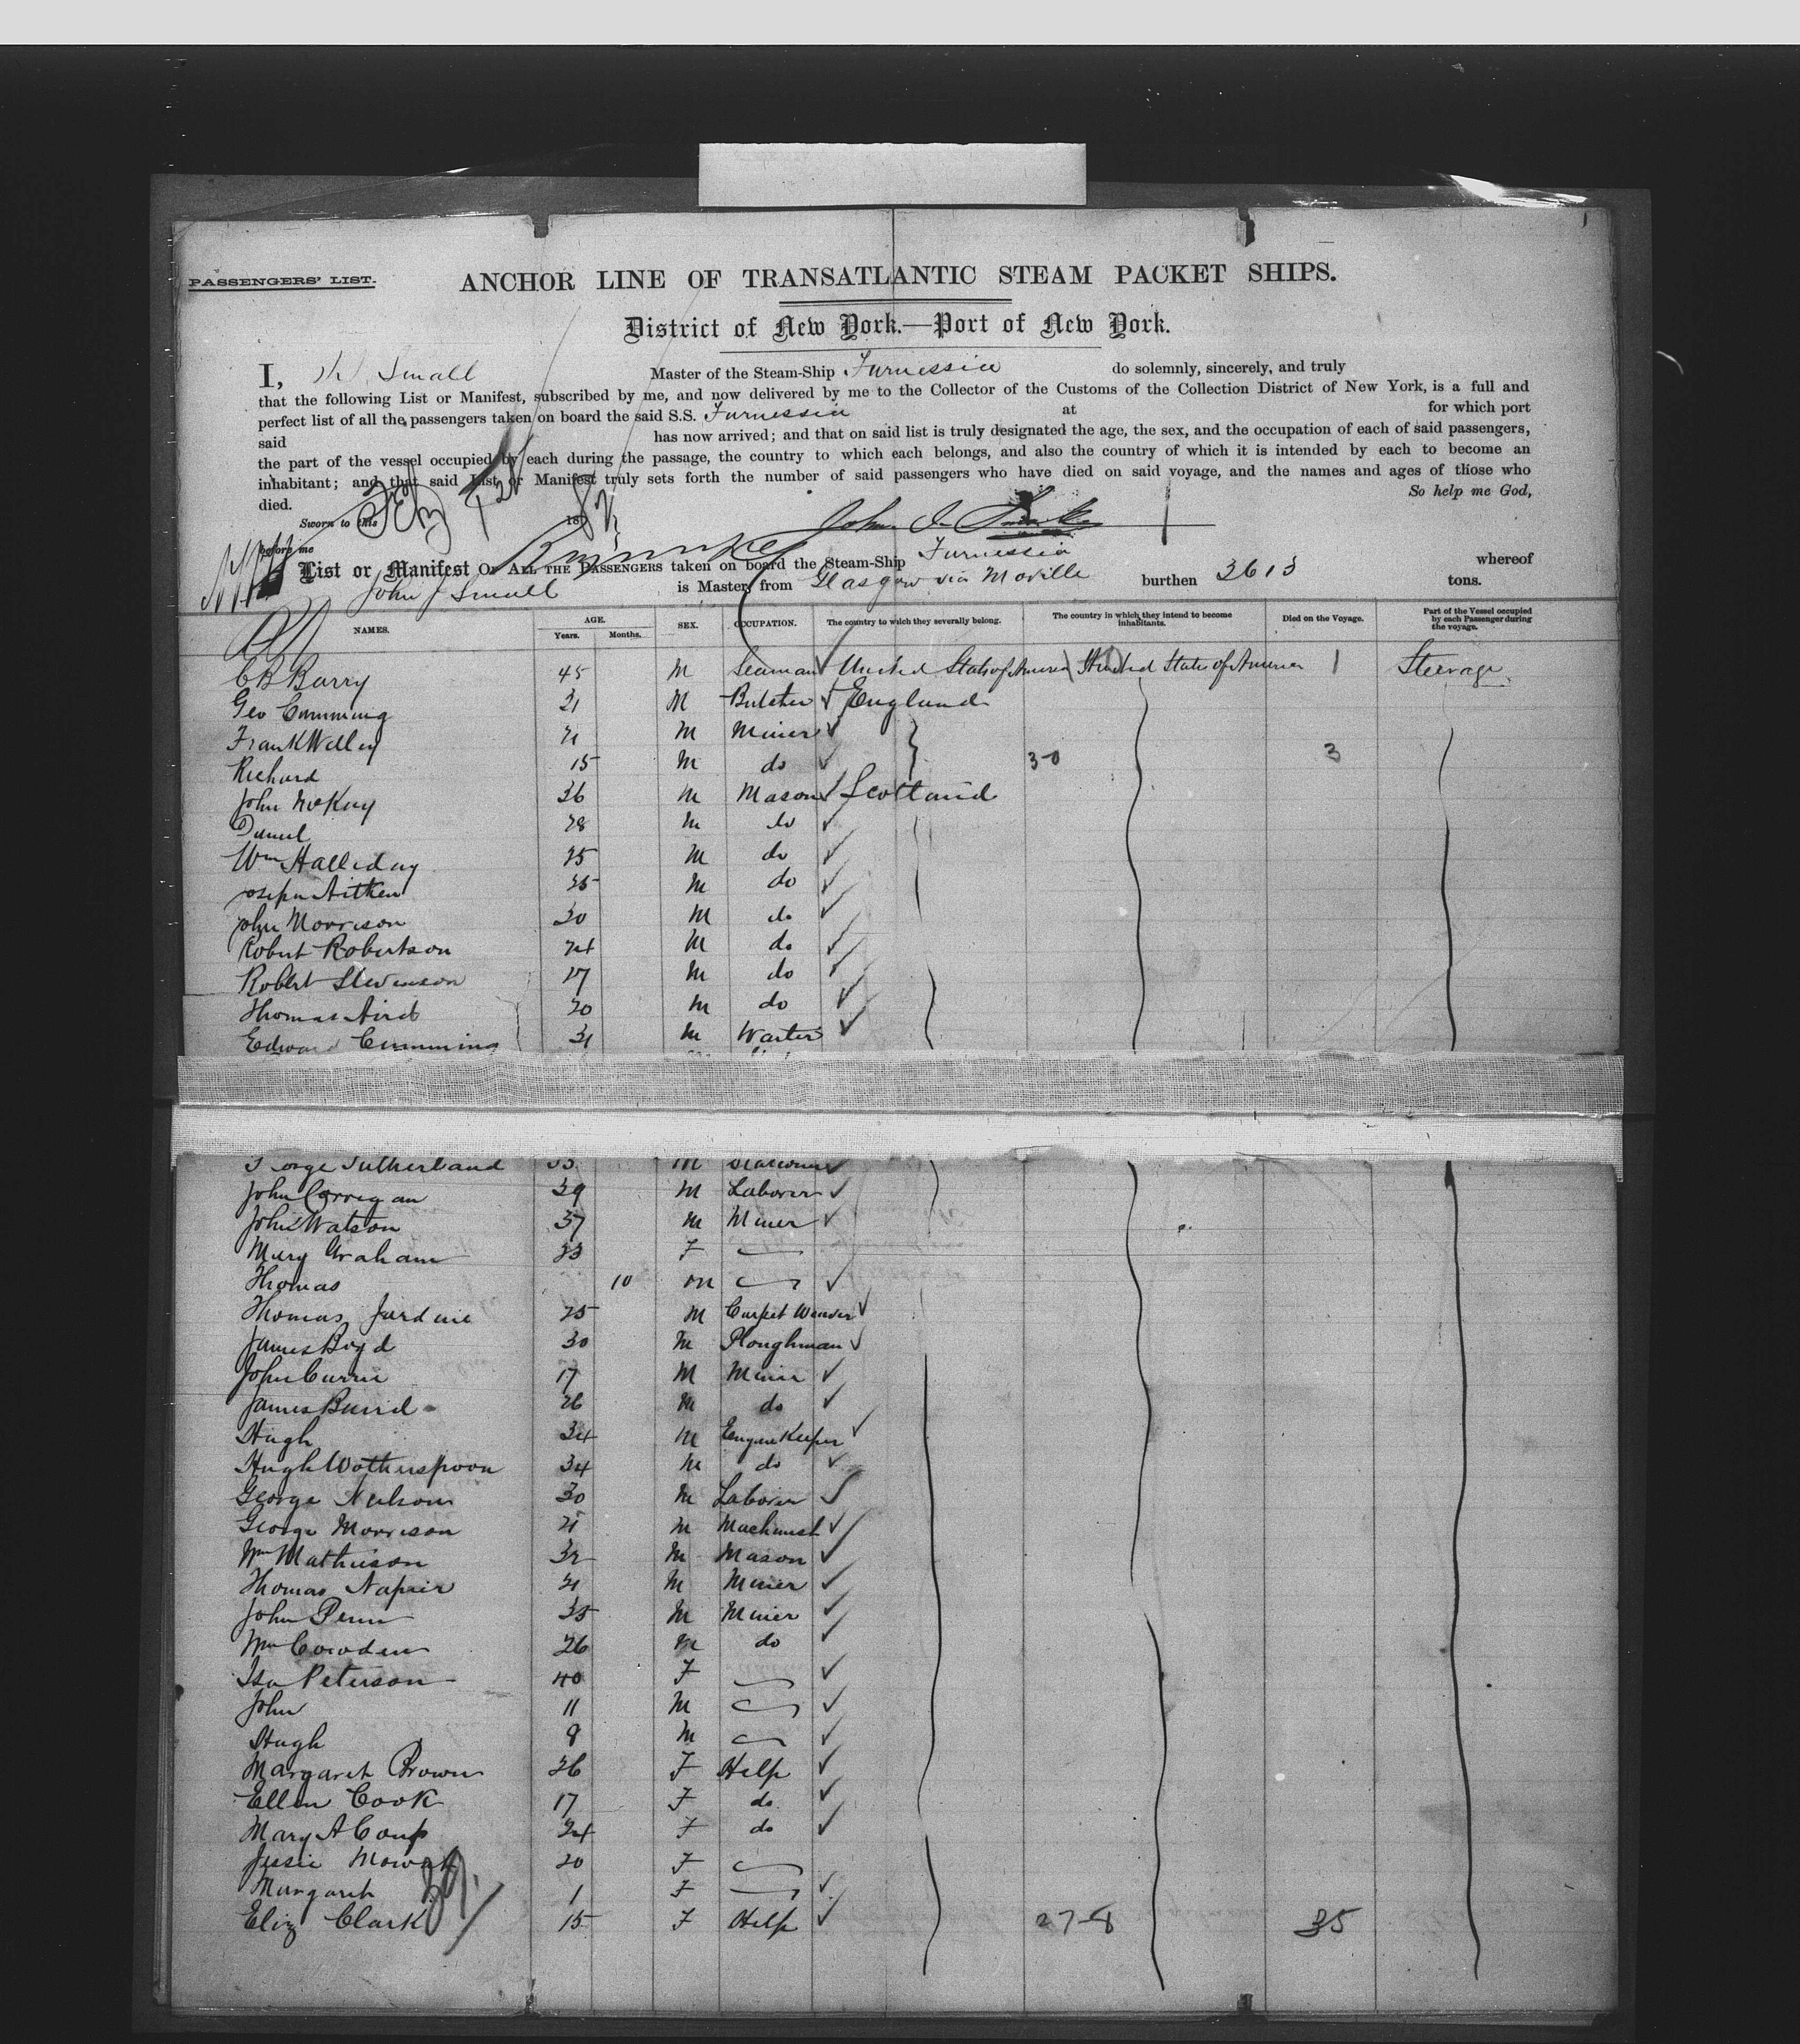 PASSENGERS' LIST.
ANCHOR LINE OF TRANSATLANTIC STEAM PACKET SHIPS.
District of New York.—Port of New York.
I, Small Master of the Steam-Ship Furnessia do solemnly, sincerely, and truly
that the following List or Manifest, subscribed by me, and now delivered by me to the Collector of the Customs of the Collection District of New York, is a full and
perfect list of all the passengers taken on board the said S.S. Furnessia at for which port
said has now arrived; and that on said list is truly designated the age, the sex, and the occupation of each of said passengers,
the part of the vessel occupied by each during the passage, the country to which each belongs, and also the country of which it is intended by each to become an
inhabitant; and that said List or Manifest truly sets forth the number of said passengers who have died on said voyage, and the names and ages of those who
died. So help me God,
Sworn to this 18
before me
List or Manifest OF ALL THE PASSENGERS taken on board the Steam-Ship Furnessia whereof
John J Small is Master, from Glasgow via Moville burthen 3613 tons.
NAMES. AGE. Years. Months. SEX. OCCUPATION. The country to which they severally belong. The country in which they intend to become inhabitants. Died on the Voyage. Part of the Vessel occupied by each Passenger during the voyage.
C B Barry 45 M Seaman United States of America United States of America 1 Steerage
Geo Cumming 31 M Butcher England
Frank Willey 21 M Miner
Richard 15 M do 30 3
John McKay 36 M Mason Scotland
Daniel 28 M do
Wm Halliday 25 M do
Joseph Aitken 35 M do
John Morrison 30 M do
Robert Robertson 24 M do
Robert Stevenson 17 M do
Thomas Aird 20 M do
Edward Cumming 31 M Waiter
George Sutherland 33 M
John Corrigan 39 M Laborer
John Watson 37 M Miner
Mary Graham 33 F
Thomas 10 M
Thomas Jardine 25 M Carpet Weaver
James Boyd 30 M Ploughman
John Currie 17 M Miner
James Baird 26 M do
Hugh 34 M Engine Keeper
Hugh Wotherspoon 34 M do
George Neilson 30 M Laborer
George Morrison 21 M Machinist
Wm Mathieson 32 M Mason
Thomas Napier 21 M Miner
John Penn 35 M Miner
Wm Cowden 26 M do
Isa Peterson 40 F
John 11 M
Hugh 9 M
Margaret Brown 26 F Help
Ellen Cook 17 F do
Mary A Coup 24 F do
Jessie Mowat 20 F
Margaret 1 F
Eliz Clark 15 F Help 27-8 35
39